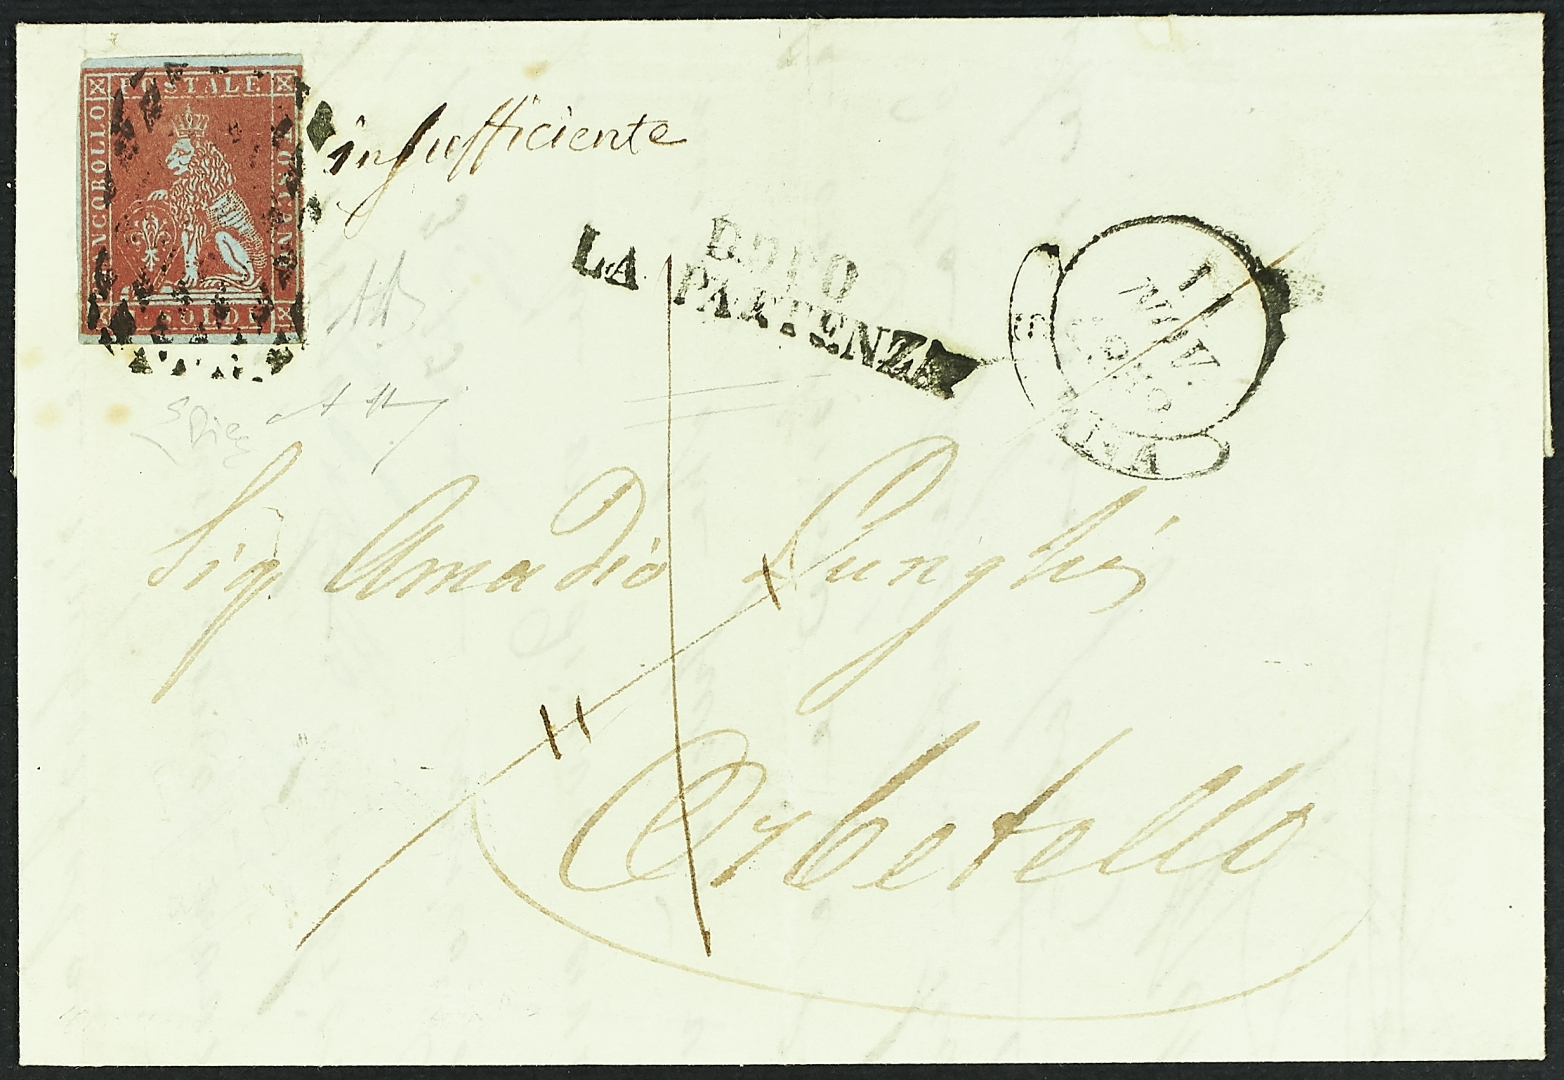 FRANCOBOLLO
POSTALE
TOSCANO
1 SOLDO 1
insufficiente
DOPO
LA PARTENZA
11
NOV.
Sig. Amadio Lunghi
Orbetello